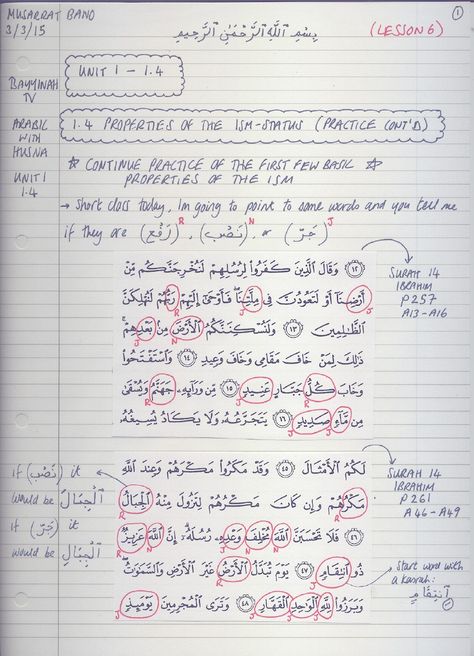 MUSARRAT BANO
3/3/15
بِسْمِ اللَّهِ الرَّحْمَٰنِ الرَّحِيمِ
(LESSON 6)
①
UNIT 1 - 1.4
BAYYINAH
TV
ARABIC
WITH
HUSNA
UNIT 1
1.4
1.4 PROPERTIES OF THE ISM-STATUS (PRACTICE CONT'D)
☆ CONTINUE PRACTICE OF THE FIRST FEW BASIC ☆
PROPERTIES OF THE ISM
→ Short class today, Im going to point to some words and you tell me
R N J
if they are (رَفْع), (نَصْب), or (جَرّ)
١٢ وَقَالَ الَّذِينَ كَفَرُوا لِرُسُلِهِمْ لَنُخْرِجَنَّكُم مِّنْ
أَرْضِنَا أَوْ لَتَعُودُنَّ فِي مِلَّتِنَا فَأَوْحَىٰ إِلَيْهِمْ رَبُّهُمْ لَنُهْلِكَنَّ
الظَّالِمِينَ ١٣ وَلَنُسْكِنَنَّكُمُ الْأَرْضَ مِن بَعْدِهِمْ
ذَٰلِكَ لِمَنْ خَافَ مَقَامِي وَخَافَ وَعِيدِ ١٤ وَاسْتَفْتَحُوا
وَخَابَ كُلُّ جَبَّارٍ عَنِيدٍ ١٥ مِّن وَرَائِهِ جَهَنَّمُ وَيُسْقَىٰ
مِن مَّاءٍ صَدِيدٍ ١٦ يَتَجَرَّعُهُ وَلَا يَكَادُ يُسِيغُهُ
SURAH 14
IBRAHIM
P 257
A13-A16
لَكُمُ الْأَمْثَالَ ٤٥ وَقَدْ مَكَرُوا مَكْرَهُمْ وَعِندَ اللَّهِ
مَكْرُهُمْ وَإِن كَانَ مَكْرُهُمْ لِتَزُولَ مِنْهُ الْجِبَالُ
٤٦ فَلَا تَحْسَبَنَّ اللَّهَ مُخْلِفَ وَعْدِهِ رُسُلَهُ إِنَّ اللَّهَ عَزِيزٌ
ذُو انتِقَامٍ ٤٧ يَوْمَ تُبَدَّلُ الْأَرْضُ غَيْرَ الْأَرْضِ وَالسَّمَاوَاتُ
وَبَرَزُوا لِلَّهِ الْوَاحِدِ الْقَهَّارِ ٤٨ وَتَرَى الْمُجْرِمِينَ يَوْمَئِذٍ
SURAH 14
IBRAHIM
P 261
A46-A49
if (نَصْب) it
would be الْجِبَالَ
if (جَرّ) it
would be الْجِبَالِ
Start word with
a kasrah:
اِنتِقَامٍ